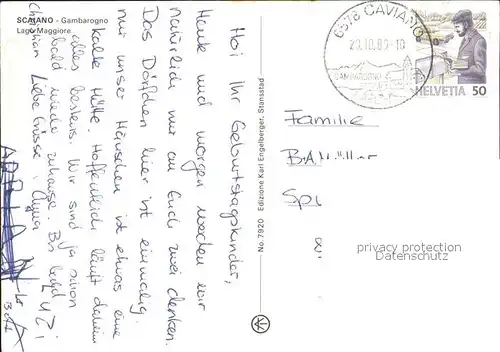 SCAIANO - Gambarogno
Lago Maggiore
Hoi Ihr Geburtstagskinder,
Heute und morgen werden wir
natürlich nur an Euch zwei denken.
Das Dörfchen hier ist einmalig,
nur unser Häuschen ist etwas eine
kalte Hütte. Hoffentlich läuft daheim
alles bestens. Wir sind ja schon
bald wieder zuhause. Bis bald
Christian Liebe Grüsse
No. 7920 Edizione Karl Engelberger, Stansstad
6578 CAVIANO
GAMBAROGNO
HELVETIA 50
Familie
privacy protection
Datenschutz